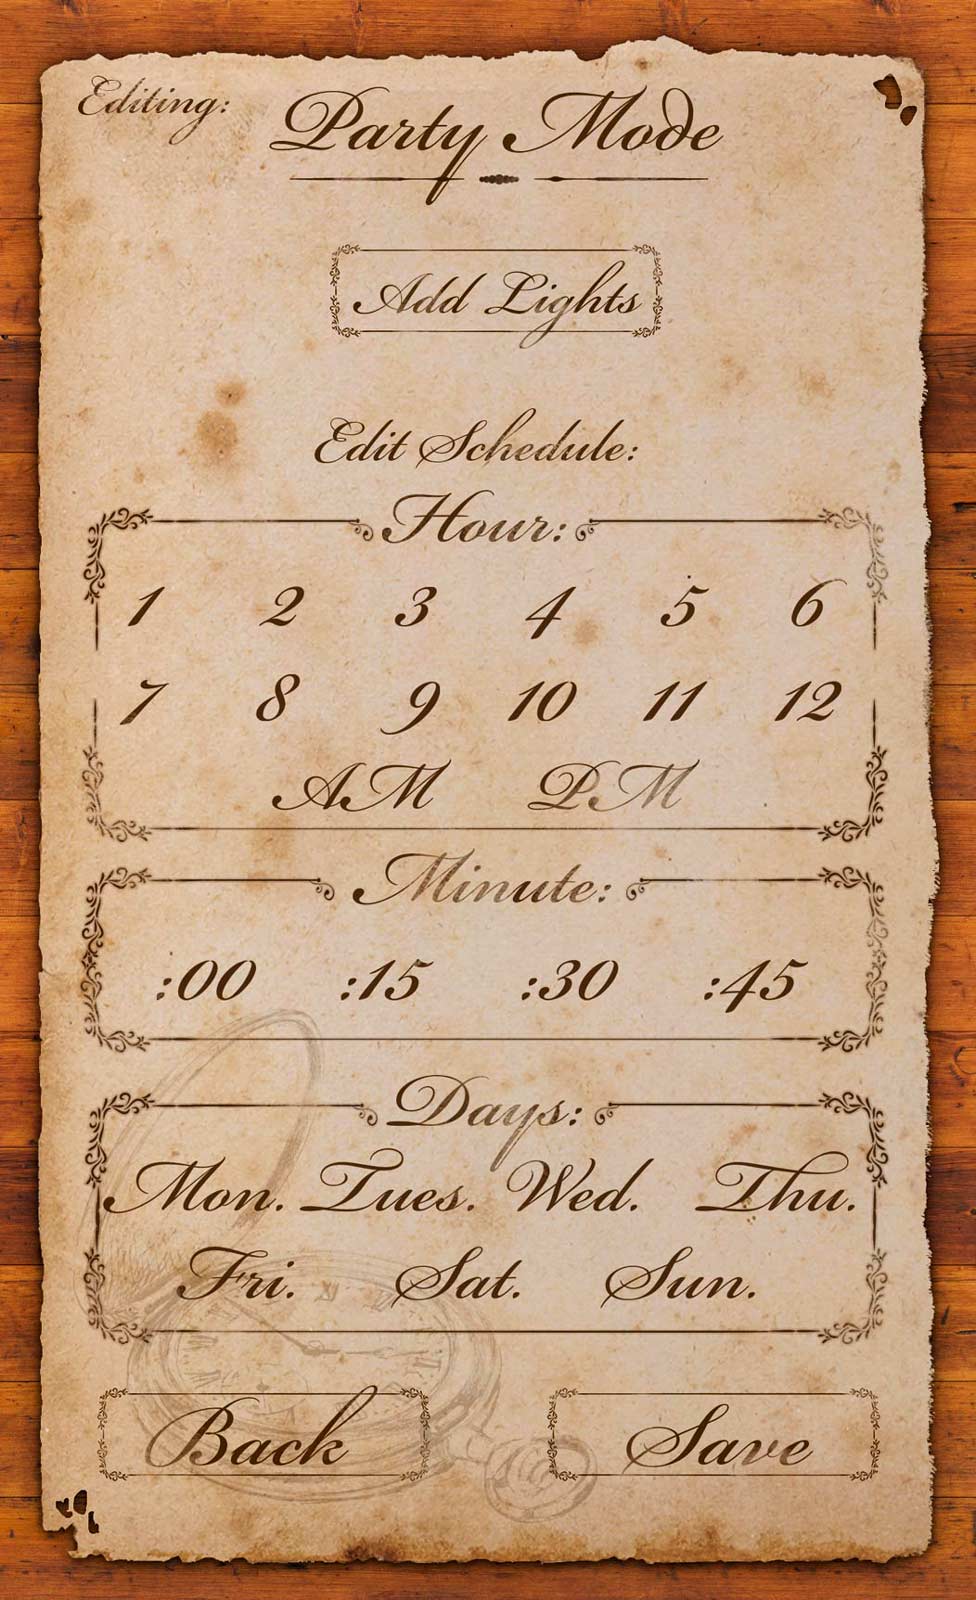 Editing:
Party Mode
Add Lights
Edit Schedule:
Hour:
1 2 3 4 5 6
7 8 9 10 11 12
AM PM
Minute:
:00 :15 :30 :45
Days:
Mon. Tues. Wed. Thu.
Fri. Sat. Sun.
Back Save